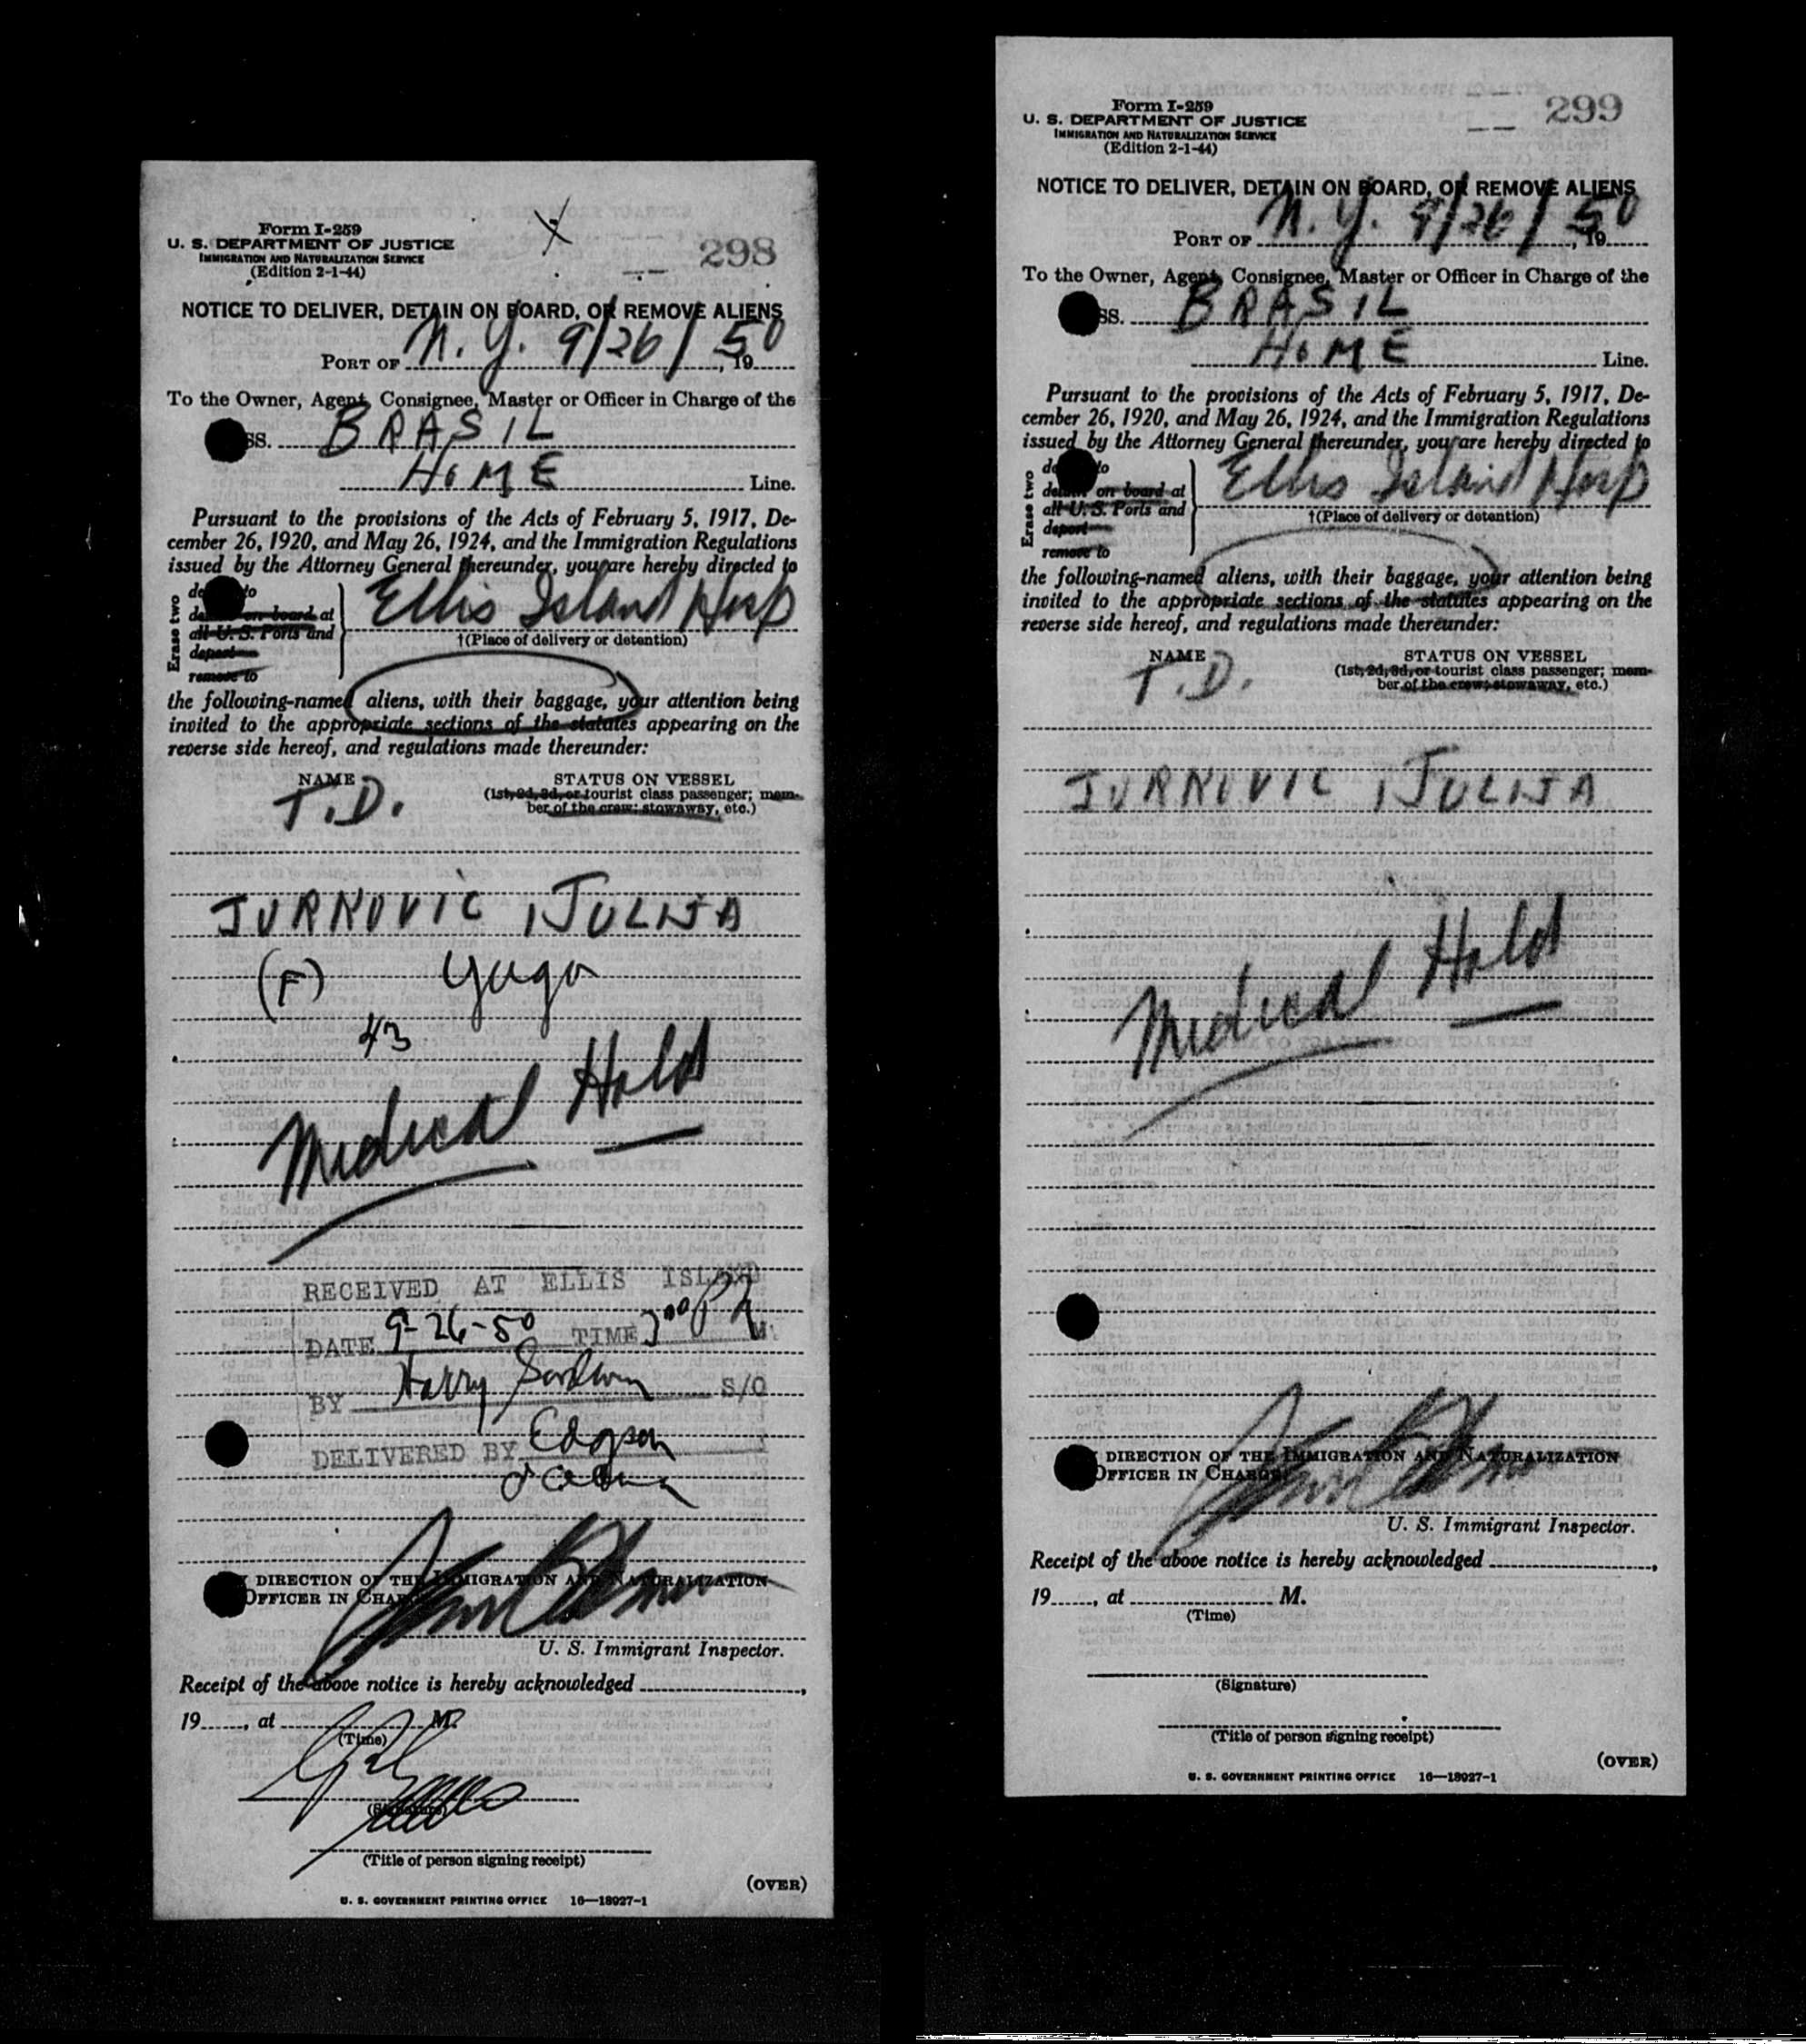 Form I-259
U. S. DEPARTMENT OF JUSTICE
IMMIGRATION AND NATURALIZATION SERVICE
(Edition 2-1-44)
298
NOTICE TO DELIVER, DETAIN ON BOARD, OR REMOVE ALIENS
PORT OF N. Y. 9/26/50, 19
To the Owner, Agent, Consignee, Master or Officer in Charge of the
SS. BRASIL
HOME Line.
Pursuant to the provisions of the Acts of February 5, 1917, De-
cember 26, 1920, and May 26, 1924, and the Immigration Regulations
issued by the Attorney General thereunder, you are hereby directed to
Erase two
to
on board at
all U. S. Ports and
deport
remove to
Ellis Island Hosp
†(Place of delivery or detention)
the following-named aliens, with their baggage, your attention being
invited to the appropriate sections of the statutes appearing on the
reverse side hereof, and regulations made thereunder:
NAME STATUS ON VESSEL
(1st, 2d, 3d, or tourist class passenger; mem-
ber of the crew; stowaway, etc.)
T.D.
JURKOVIC, JULIJA
(F) Yugo
43
Medical Hold
RECEIVED AT ELLIS ISLAND
DATE 9-26-50 TIME 3 00 P M.
BY Harry S/O
DELIVERED BY
DIRECTION OF THE IMMIGRATION AND NATURALIZATION
OFFICER IN CHARGE
U. S. Immigrant Inspector.
Receipt of the above notice is hereby acknowledged ,
19 , at M.
(Time)
(Signature)
(Title of person signing receipt)
(OVER)
U. S. GOVERNMENT PRINTING OFFICE 16—18927-1
Form I-259
U. S. DEPARTMENT OF JUSTICE
IMMIGRATION AND NATURALIZATION SERVICE
(Edition 2-1-44)
299
NOTICE TO DELIVER, DETAIN ON BOARD, OR REMOVE ALIENS
PORT OF N. Y. 9/26/50, 19
To the Owner, Agent, Consignee, Master or Officer in Charge of the
SS. BRASIL
HOME Line.
Pursuant to the provisions of the Acts of February 5, 1917, De-
cember 26, 1920, and May 26, 1924, and the Immigration Regulations
issued by the Attorney General thereunder, you are hereby directed to
Erase two
to
on board at
all U. S. Ports and
deport
remove to
Ellis Island Hosp
†(Place of delivery or detention)
the following-named aliens, with their baggage, your attention being
invited to the appropriate sections of the statutes appearing on the
reverse side hereof, and regulations made thereunder:
NAME STATUS ON VESSEL
(1st, 2d, 3d, or tourist class passenger; mem-
ber of the crew; stowaway, etc.)
T.D.
JURKOVIC, JULIJA
Medical Hold
DIRECTION OF THE IMMIGRATION AND NATURALIZATION
OFFICER IN CHARGE
U. S. Immigrant Inspector.
Receipt of the above notice is hereby acknowledged ,
19 , at M.
(Time)
(Signature)
(Title of person signing receipt)
(OVER)
U. S. GOVERNMENT PRINTING OFFICE 16—18927-1